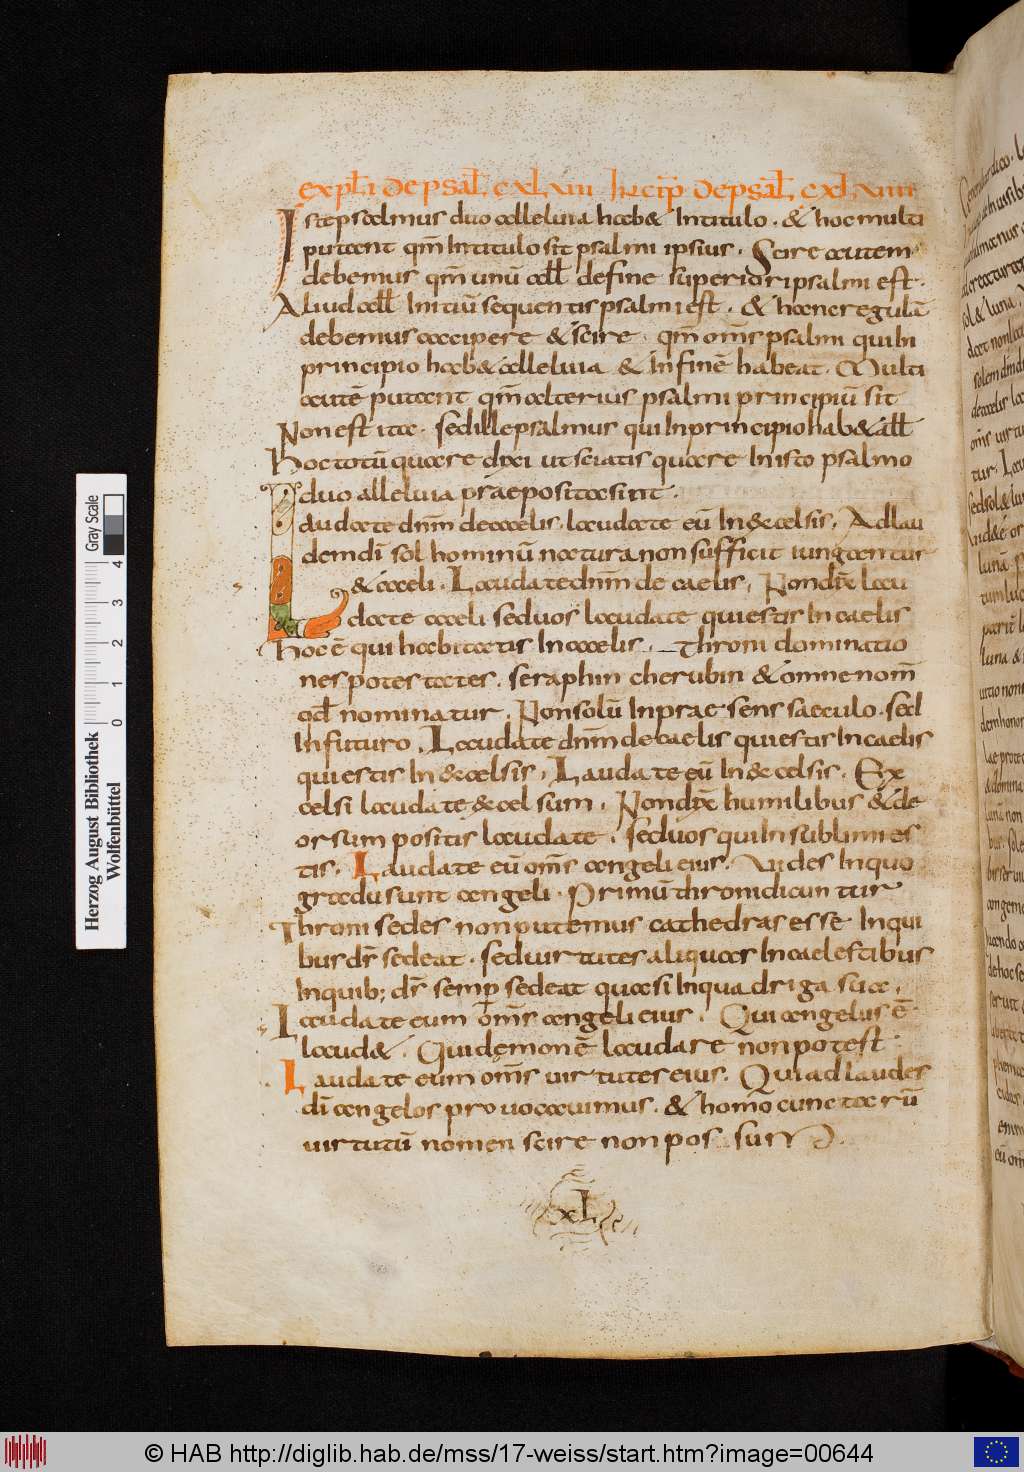 expłi de psał. cxlvii incip̄ de psał. cxlviii
Iste psalmus duo alleluia hab& Intitulo. & hoc multi
putant qm̄ Intitulo sit psalmi ipsius. Scire autem
debemus qm̄ unū all define superiori psalmi est.
Aliud all Initiū sequentis psalmi est. & hanc regulā
debemus accipere & scire. qm̄ om̄s psalmi qui In
principio hab& alleluia & Infinē habeat. Multi
autē putant qm̄ alterius psalmi principiū sit
Non est ita. sed ille psalmus qui Inprincipio hab& all
Hoc totū quare dixi ut sciatis quare Inisto psalmo
duo alleluia praeposita sint.
Laudate dnm̄ decaelis. laudate eū In&celsis. Adlau
demdī sol hominū natura non sufficit iungantur
& caeli. Laudate dnm̄ de caelis, Nondix̄ lau
date caeli sed uos laudate qui estis In caelis
Hoc ē qui habitatis In caelis. Throni dominatio
nes potestates. seraphin cherubin & omne nom̄
qd̄ nominatur. Non solū Inpraesens saeculo. sed
Infuturo. Laudate dnm̄ de caelis qui estis In caelis
qui estis In&celsis. Laudate eū In&celsis. Ex
celsi laudate &cel sum. Nondix̄ humilibus & de
orsum positis laudate. sed uos qui Insublimi es
tis. Laudate eū om̄s angeli eius. Uides Inquo
gradu sunt angeli. Primū throni dicuntur
Throni sedes non putemus cathedras esse Inqui
bus dr̄ sedeat. sed uirtutes aliquas Incaelestibus
Inquib; dr̄ semp sedeat quasi Inquadriga sua.
Laudate eum om̄s angeli eius. Qui angelus ē
laud&. Qui demon ē laudare non potest
Laudate eum om̄s uirtutes eius. Qui ad laudes
dī angelos prouocauimus. & homo cunctarū
uirtutū nomen scire non possum
xL
Herzog August Bibliothek
Wolfenbüttel
Gray Scale
0 1 2 3 4
© HAB http://diglib.hab.de/mss/17-weiss/start.htm?image=00644